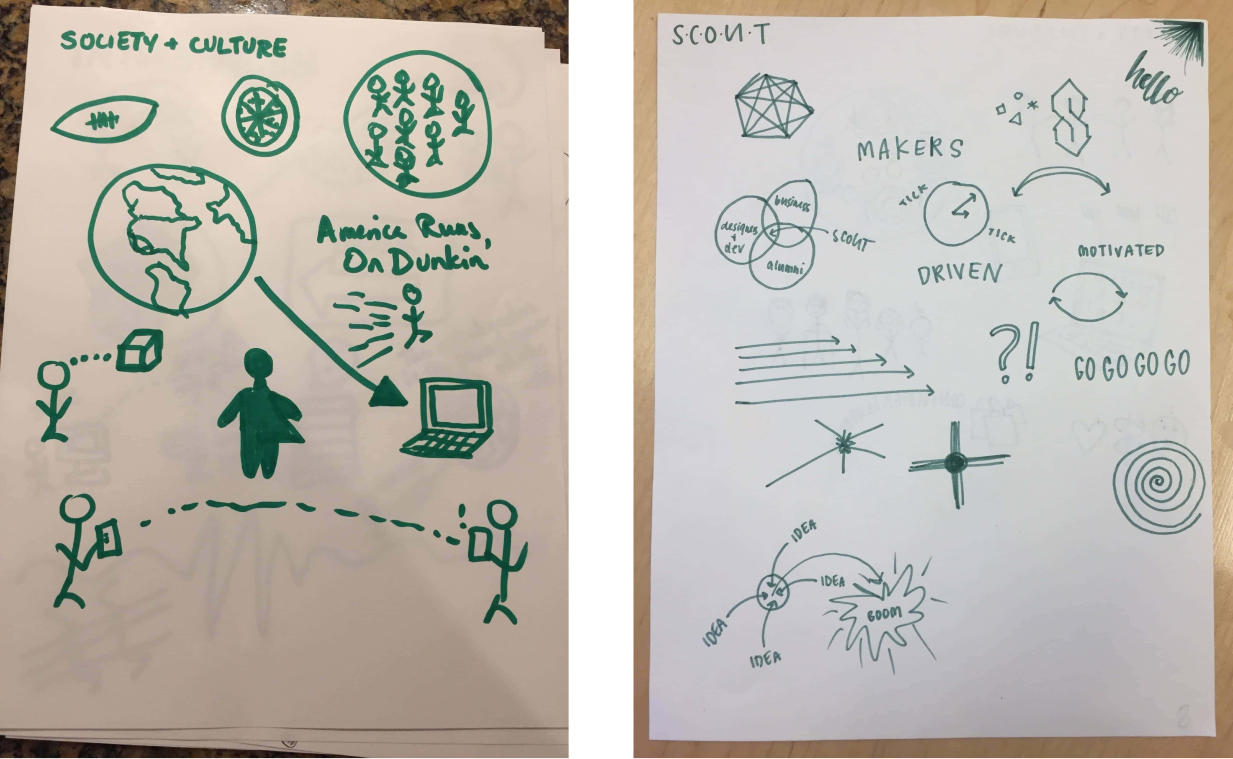 SOCIETY + CULTURE
America Runs,
On Dunkin
S.C.O.U.T
hello
MAKERS
business
designers
+
dev
SCOUT
alumni
TICK
TICK
DRIVEN
MOTIVATED
?!
GO GO GO GO
IDEA
IDEA
IDEA
IDEA
BOOM